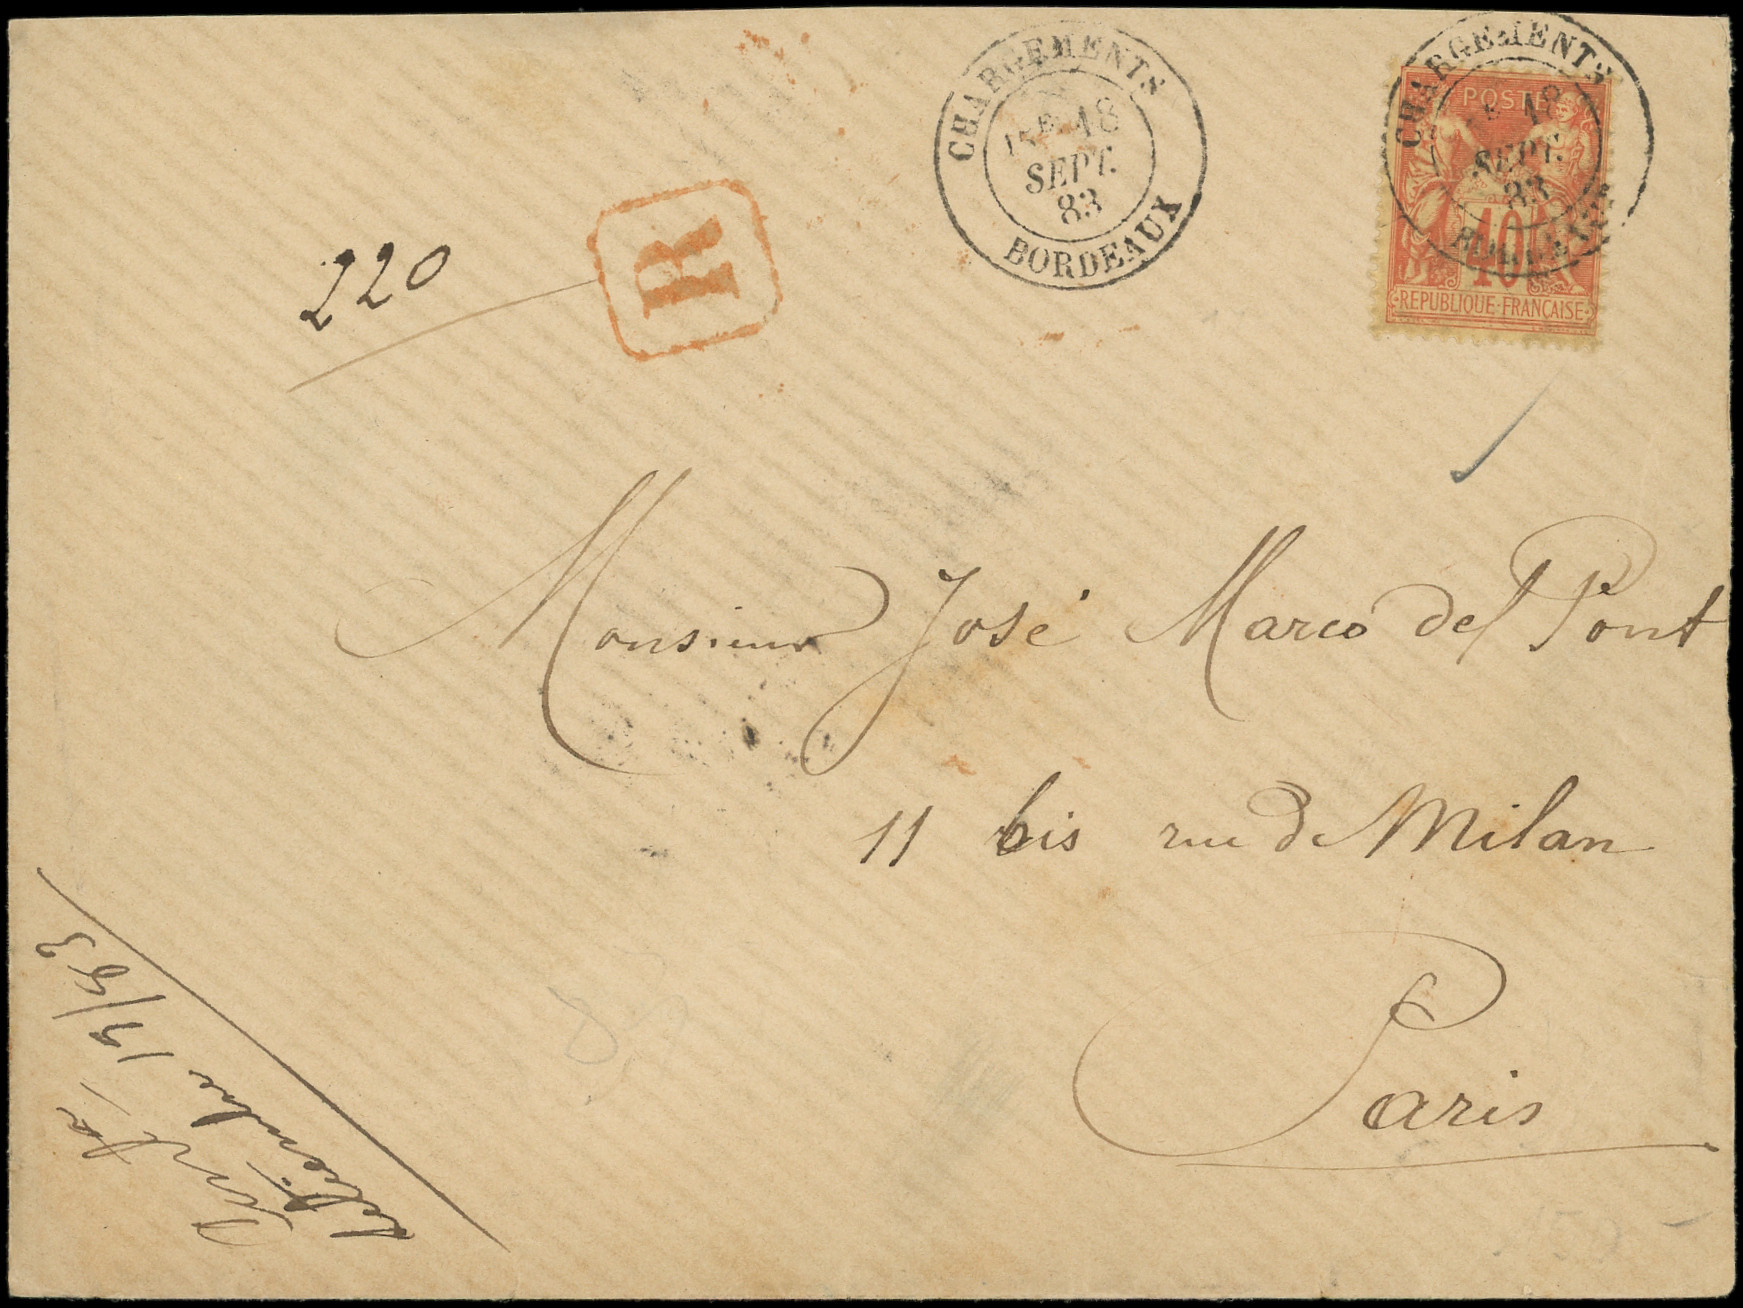 CHARGEMENTS
1RE 18
SEPT.
83
BORDEAUX
CHARGEMENTS
E 18
SEPT.
83
BORDEAUX
POSTE
40
REPUBLIQUE FRANÇAISE
R
220
Monsieur José Marco del Pont
11 bis rue de Milan
Paris
Setiembre 19/83